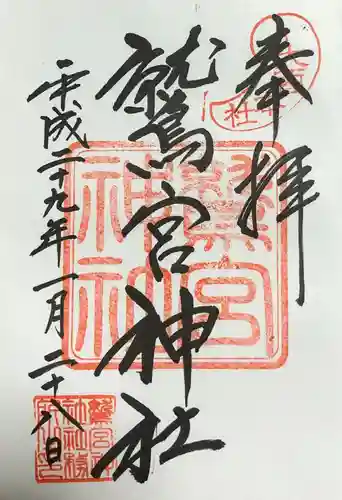 奉拝
鷲宮神社
平成二十九年一月二十八日
鷲宮
神社